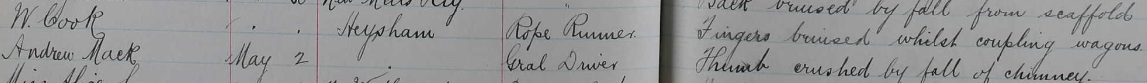 Back bruised by fall from scaffold
W. Cook " " Heysham Rope Runner Fingers bruised whilst coupling wagons.
Andrew Mack May 2 " Gral Driver Thumb crushed by fall of chimney.